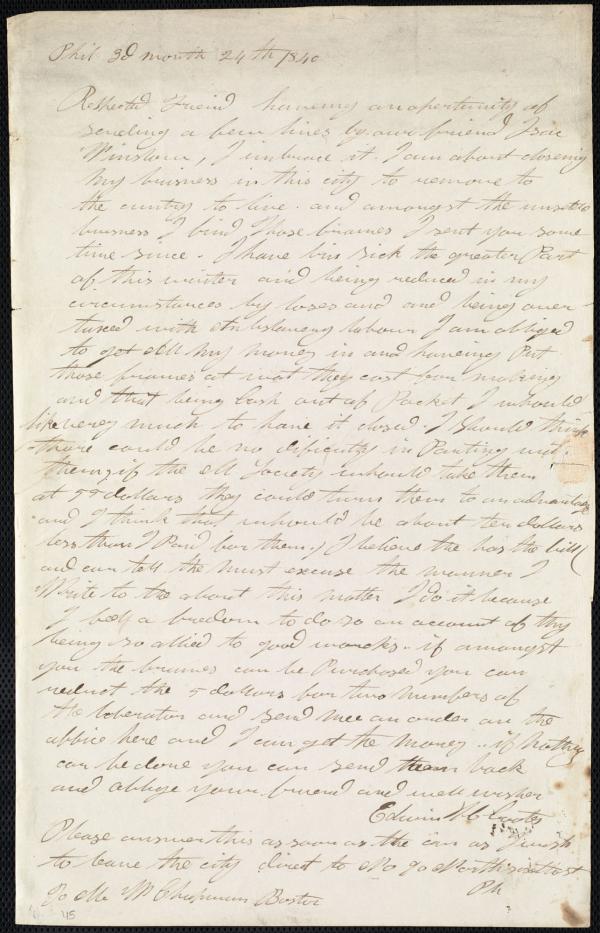 Phil 3d month 24th 1840
Respected Friend haveing an opertunity of
sending a bew lines by our friend Isac
Winslow, I imbrace it. I am about closeing
my buisness in this city to remove to
the cuntry to live. and amongst the
buisness I bind those brames I sent you some
time since. I have bin sick the greater Part
of this winter and being reduced in my
circumstances by loses and and being over
taxed with labour I am obliged
to get all my money in and haveing Put
those frames at what they cost bor making
and that being Cash out of Pocket I whould
like very much to have it closed. I should think
thare could be no dificulty in Parting with
them, if the Society whould take them
at 50 dollars they could turn them to an advantage
and I think that whould be about ten dollars
less than I Paid bor them, I believe the has the bill
and can tell the must excuse the manner I
Write to the about this matter I do it because
I beell a breedom to do so on account of thy
being so allied to good works. if amongst
you the brames can be Purchased you can
reduct the 5 dollars bor two numbers of
the liberator and send mee an order on the
abbice here and I can get the money. if nothing
can be done you can send them back
and oblige your bruend and well wisher
Edwin H Coates
Please answer this as soon as the can as I wish
to leave the city direct to No 90 North
Ph
Chapman Boston
45